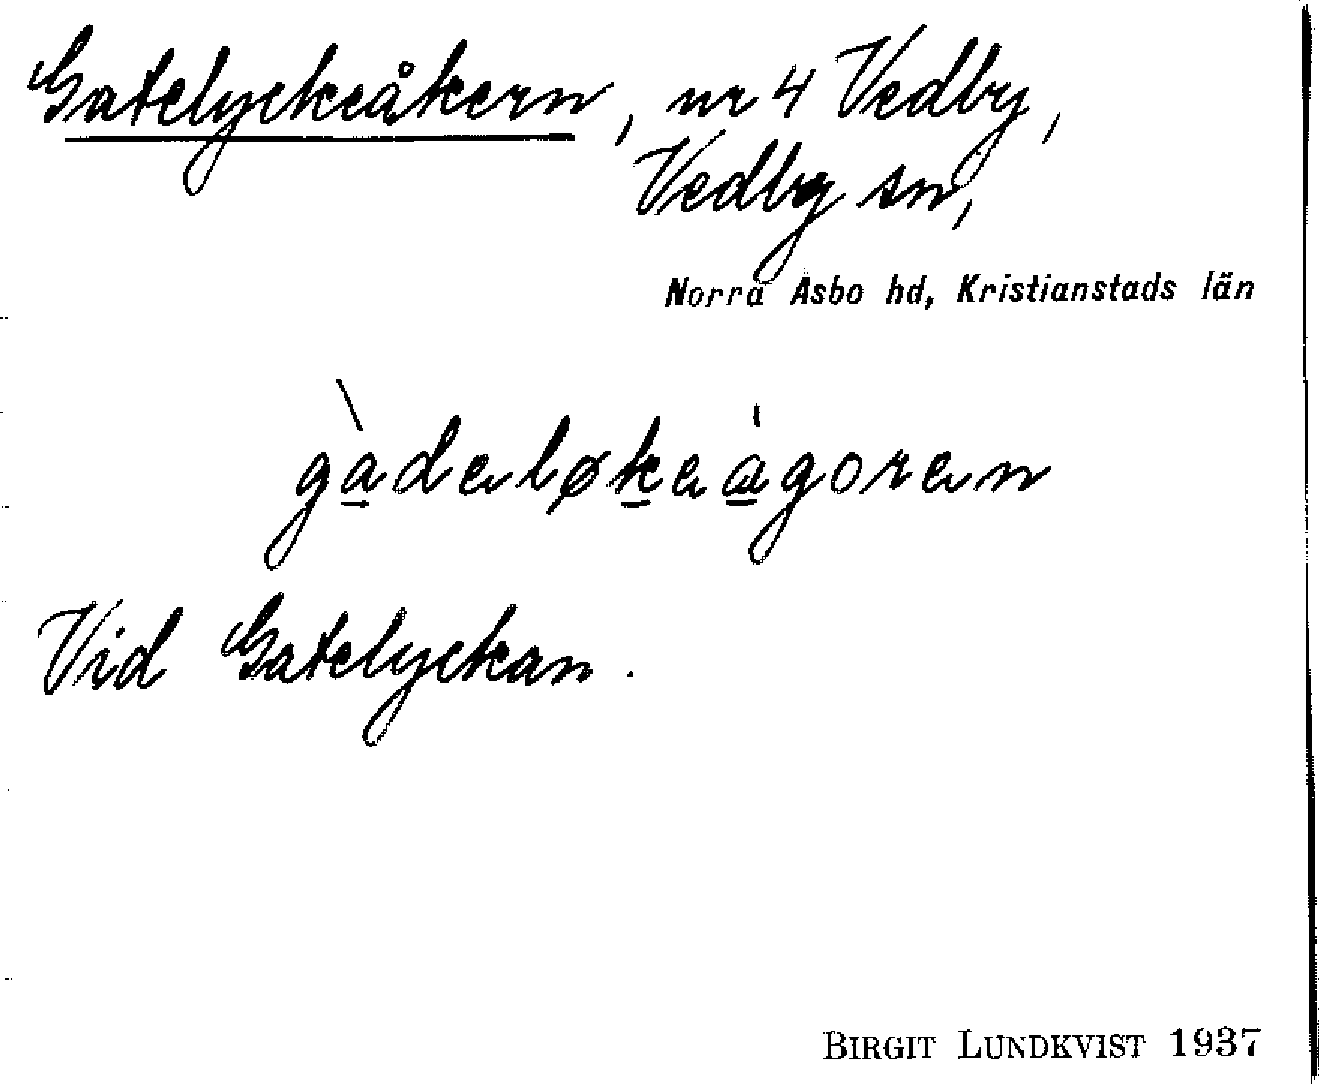 Gatelyckeåkern, nr 4 Vedby,
Vedby sn,
Norra Åsbo hd, Kristianstads län
gàdeløkeågoren
Vid Gatelyckan.
BIRGIT LUNDKVIST 1937